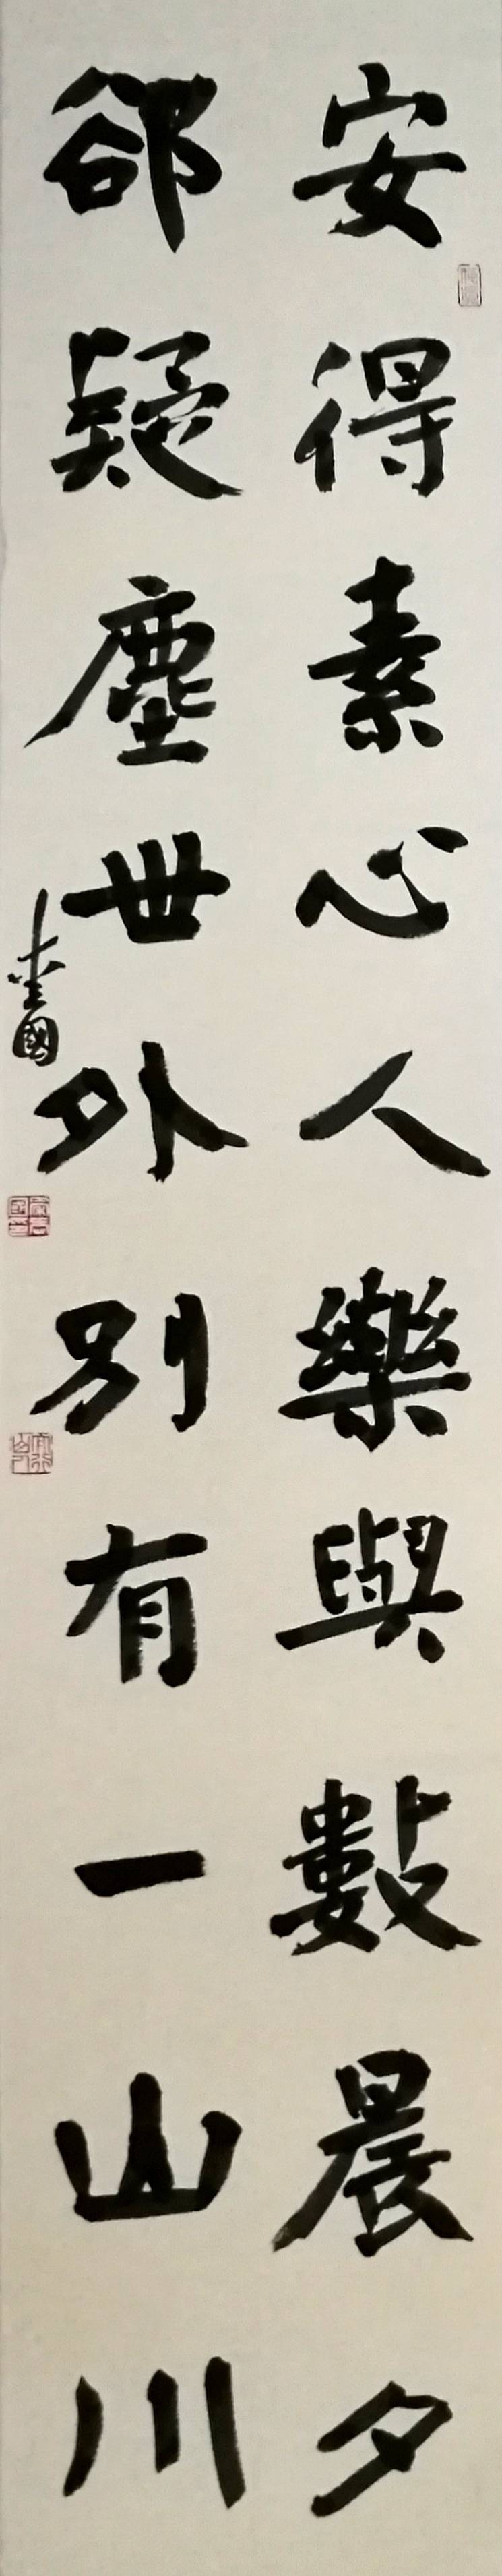 安得素心人樂與數晨夕
郤疑塵世外別有一山川